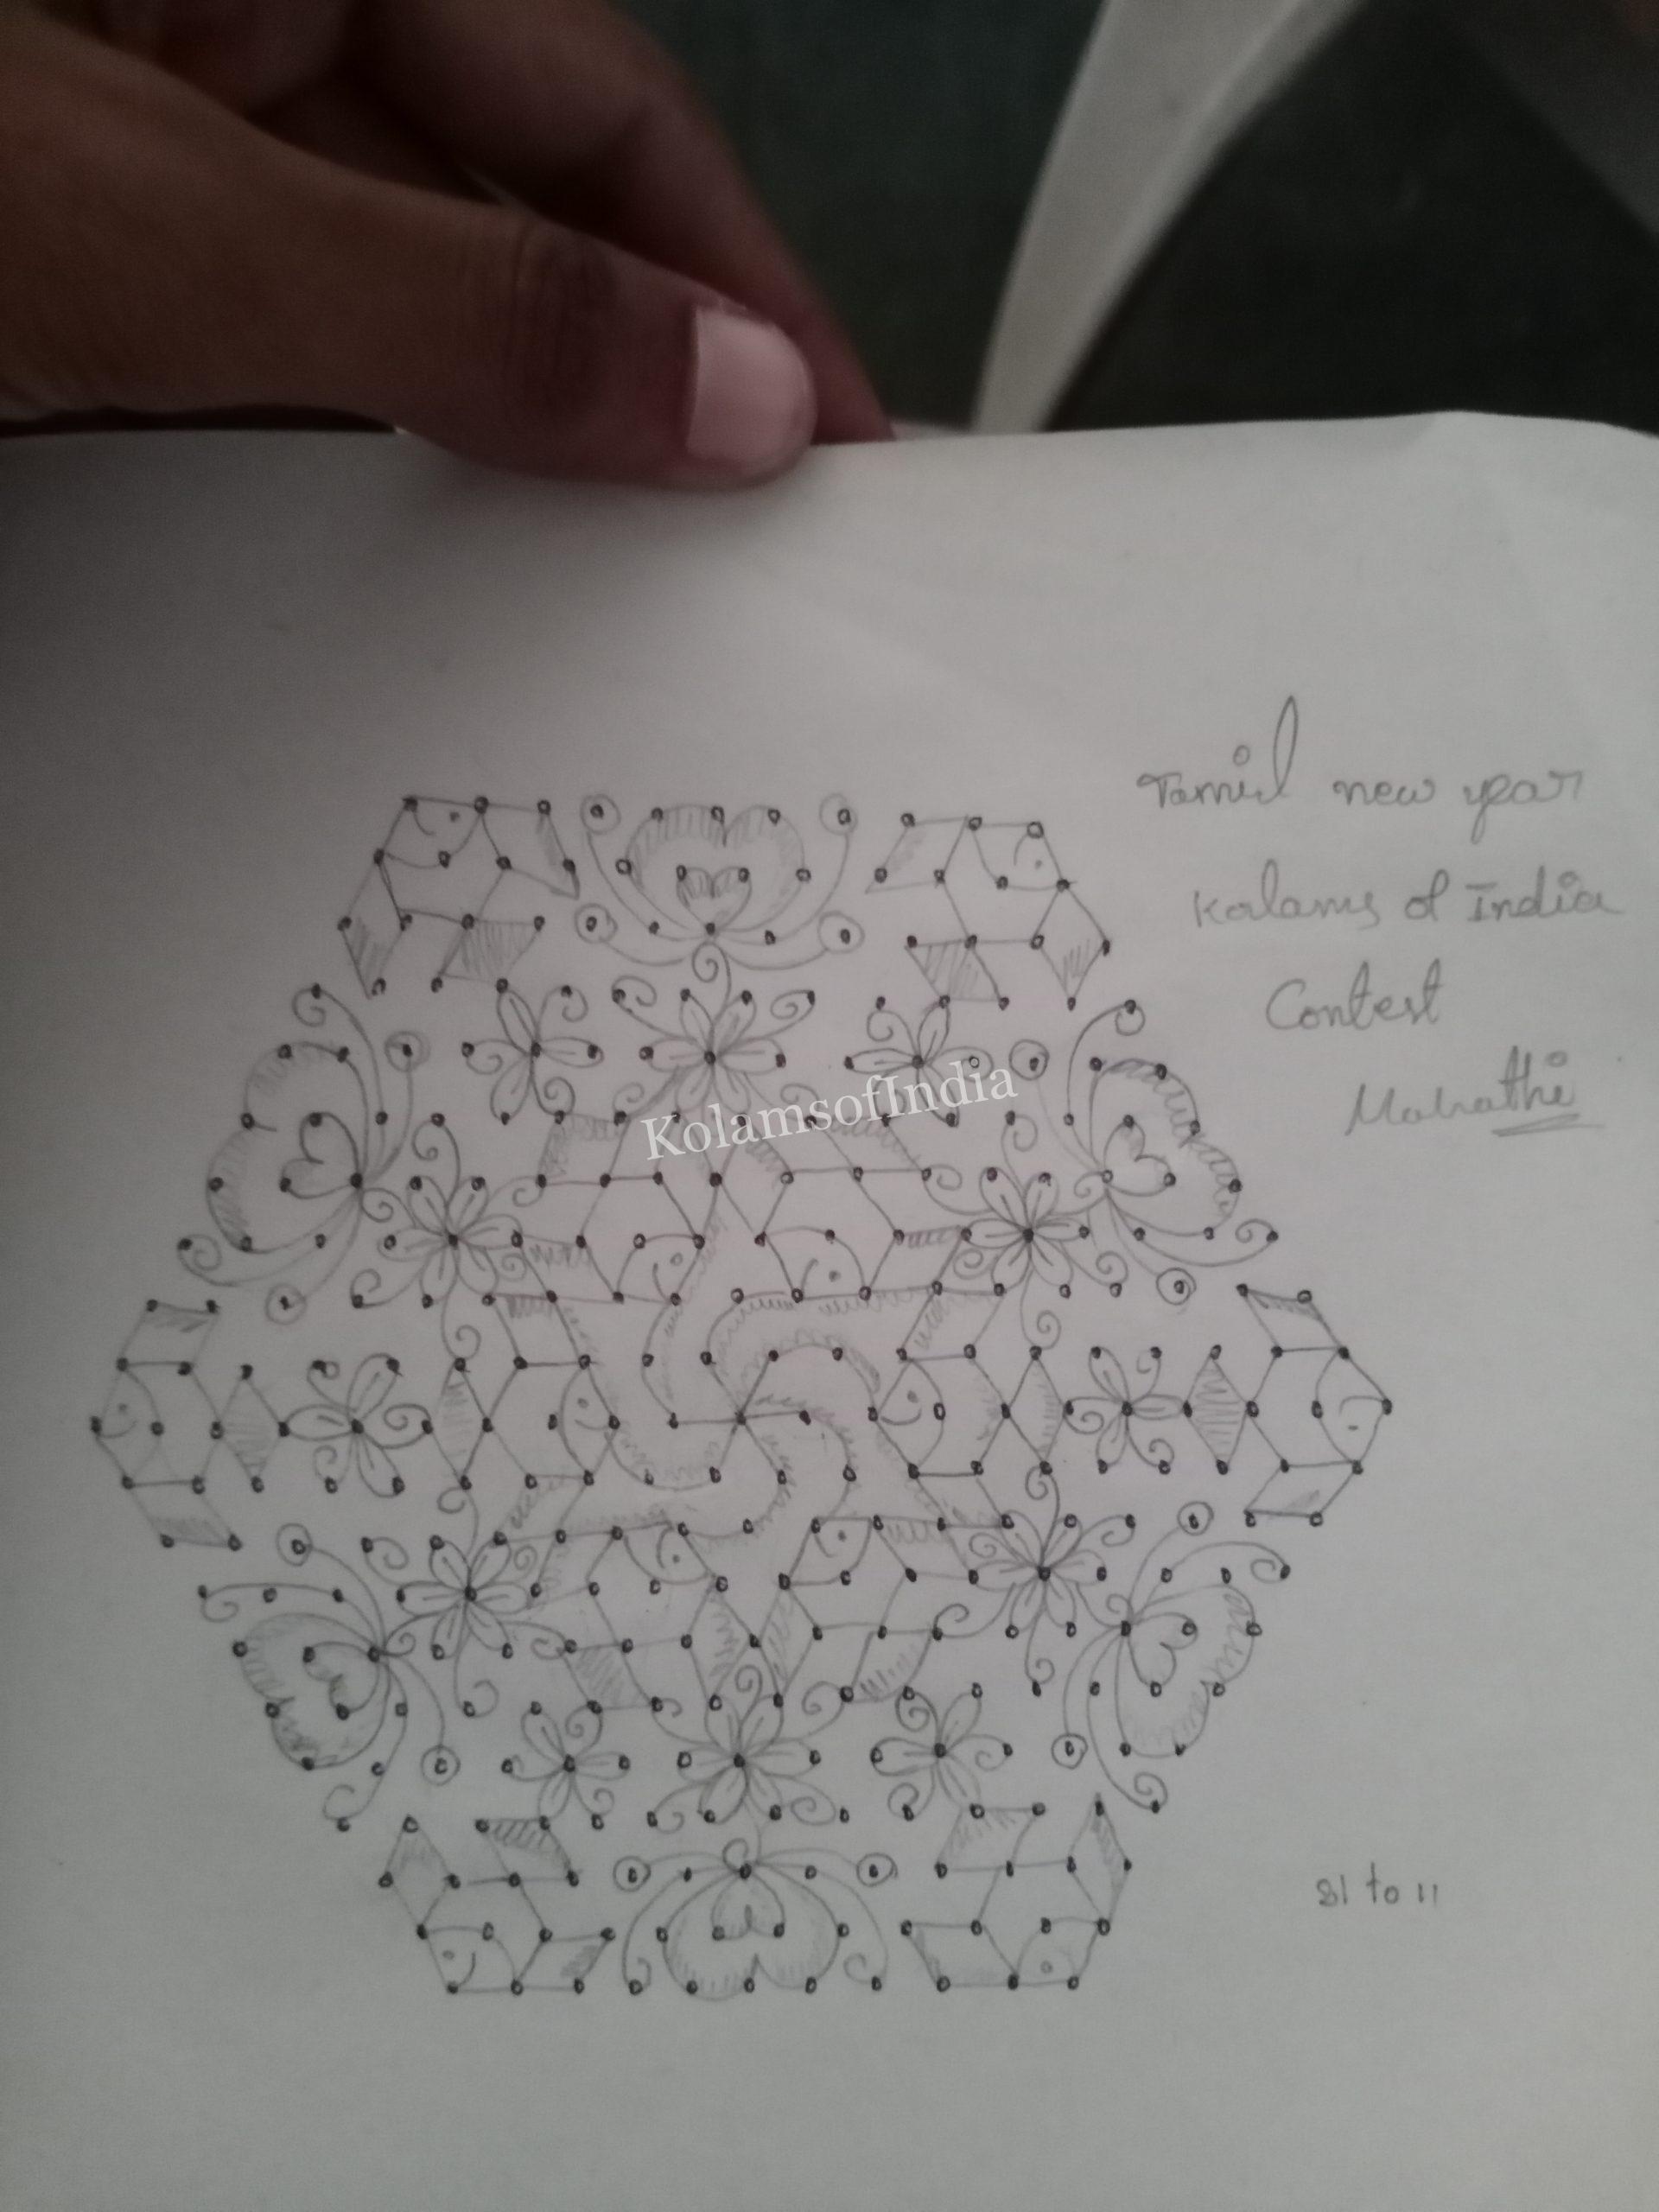 Tamil new year
Kolams of India
Contest
KolamsofIndia
to 11